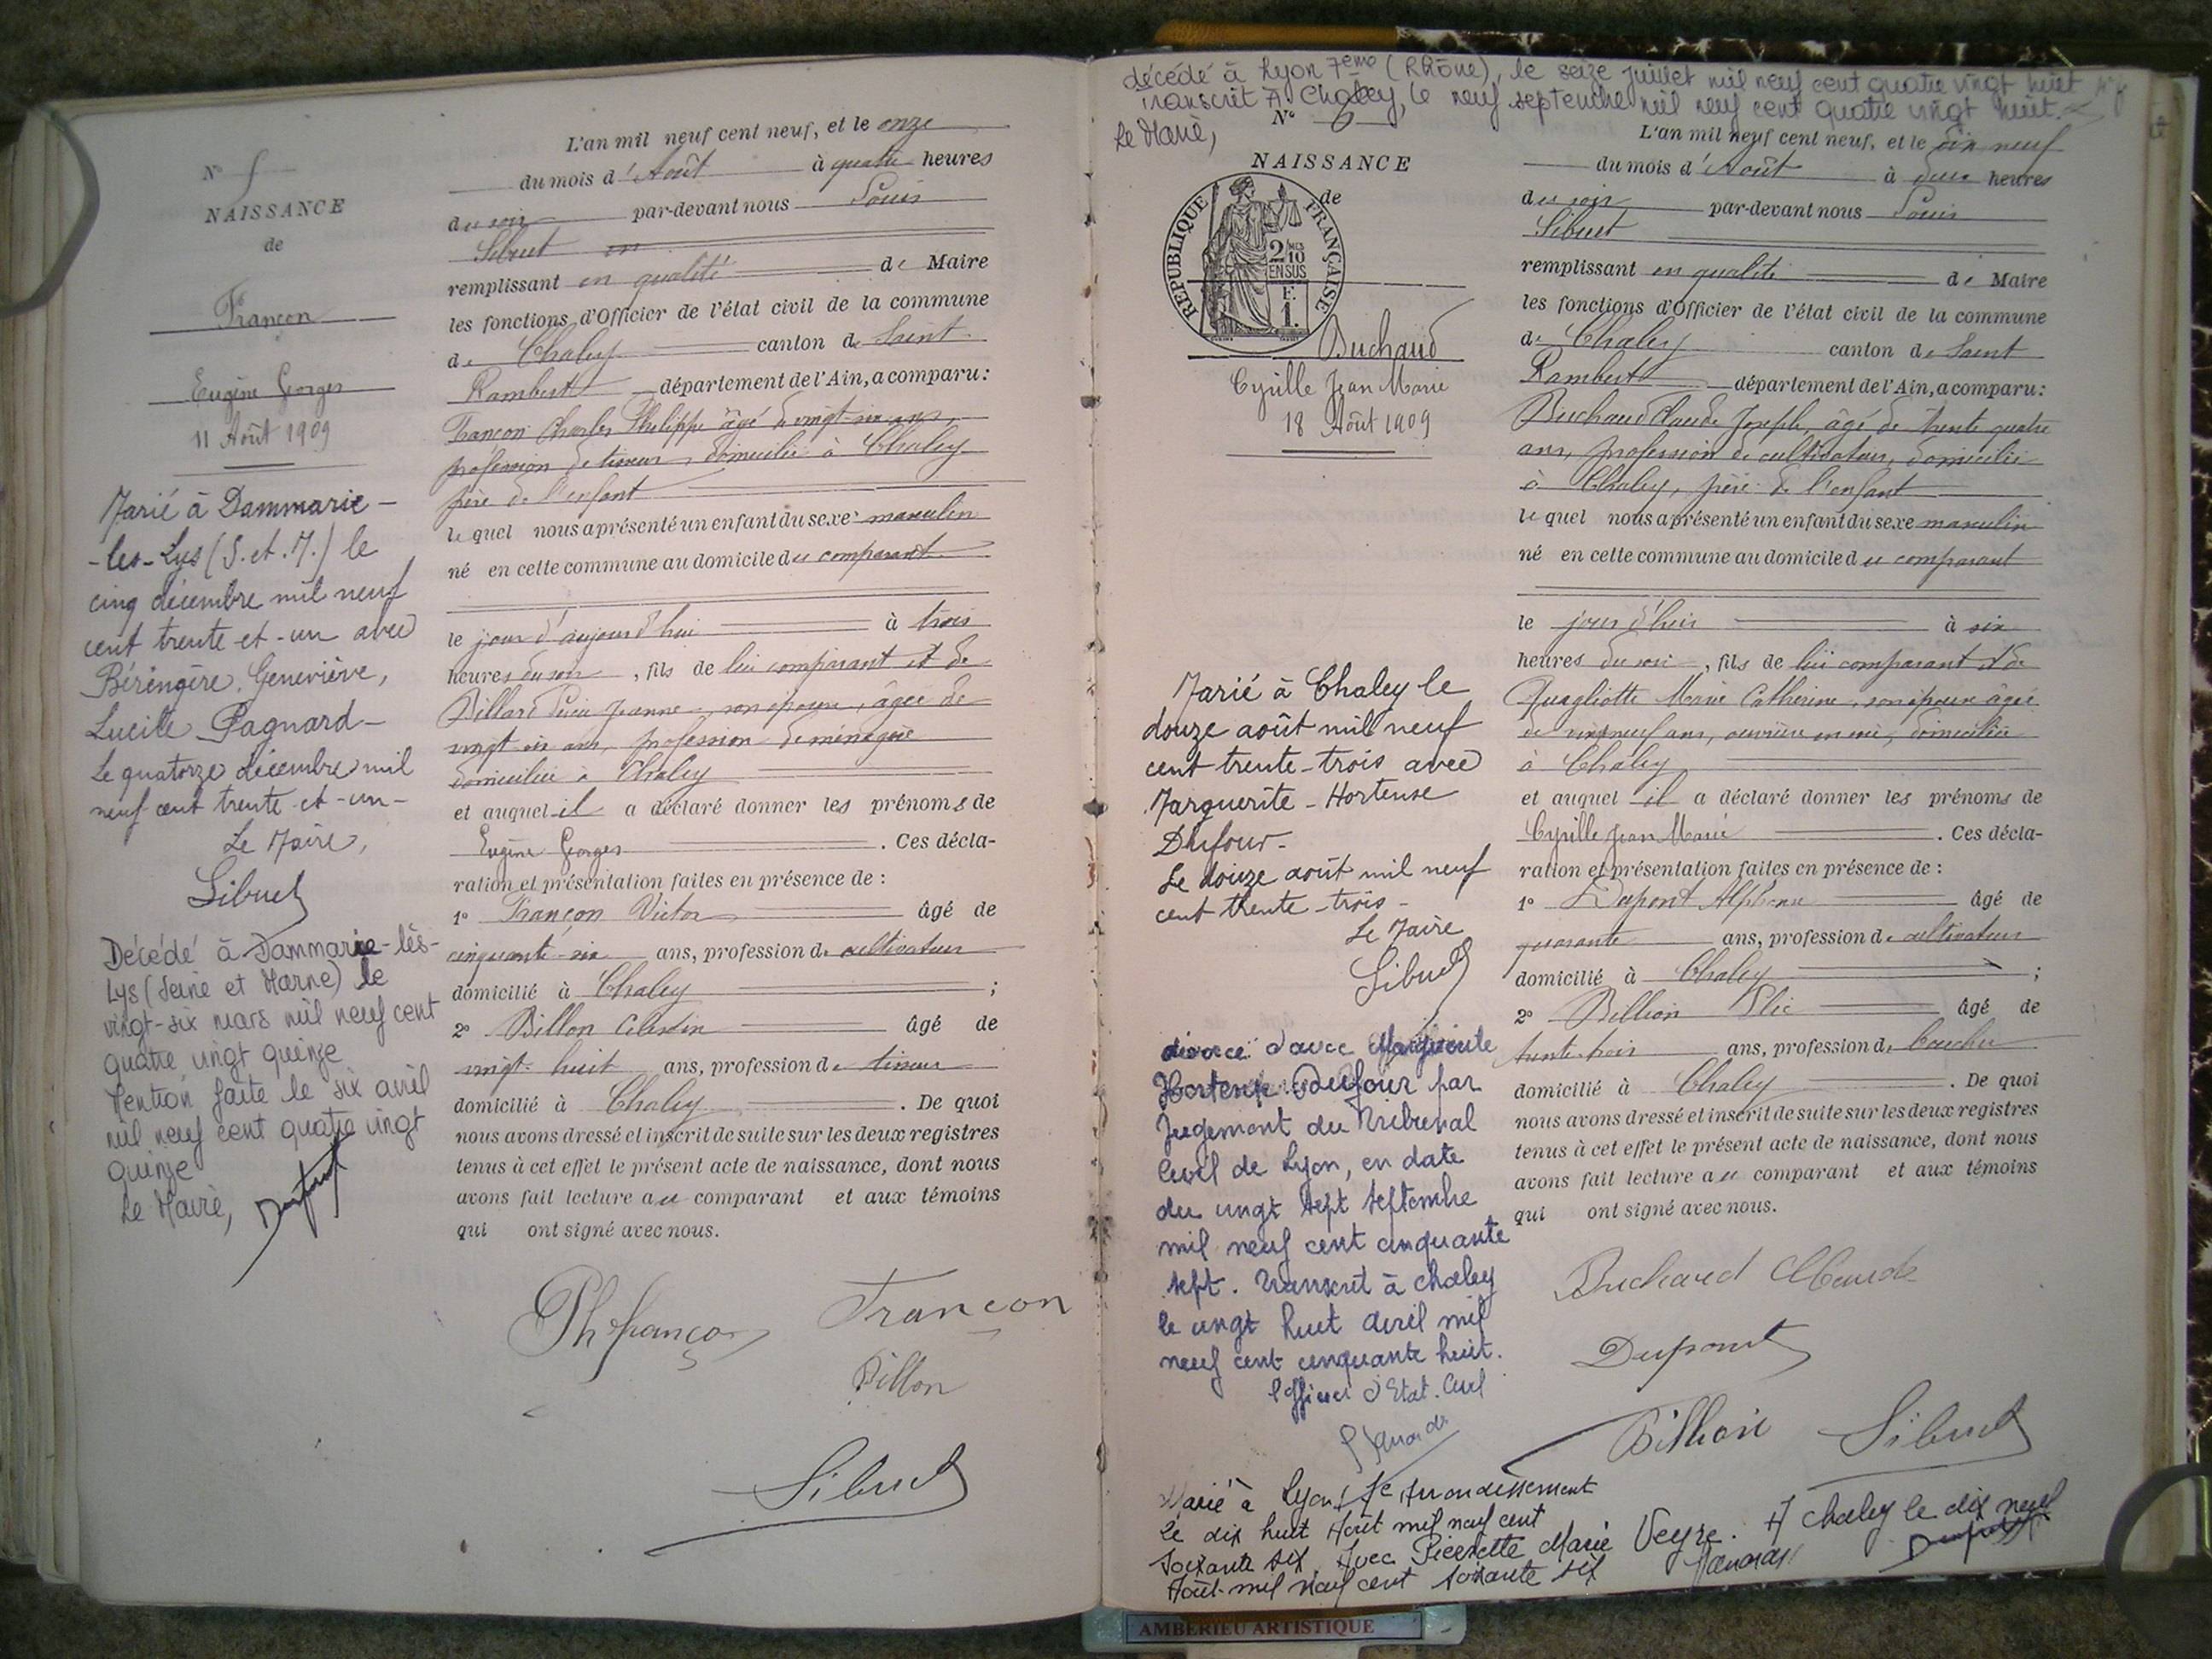 N° 5
NAISSANCE
de
Françon
Eugène Georges
11 Août 1909
Marié à Dammarie-
-les-Lys (S. et. M.) le
cinq décembre mil neuf
cent trente-et-un avec
Bérengère, Geneviève,
Lucile Pagnard-
Le quatorze décembre mil
neuf cent trente-et-un-
Le Maire,
Sibuet
Décédé à Dammarie-lès-
Lys (Seine et Marne) le
vingt-six mars mil neuf cent
quatre vingt quinze
Mention faite le six avril
mil neuf cent quatre vingt
quinze
Le Maire,
L'an mil neuf cent neuf, et le onze
du mois d'Août à quatre heures
du soir par-devant nous Louis
Sibuet
remplissant en qualité de Maire
les fonctions d'Officier de l'état civil de la commune
de Chaley canton de Saint
Rambert département de l'Ain, a comparu:
Françon Charles Philippe âgé de vingt-six ans,
profession de tisseur, domicilié à Chaley
père de l'enfant
lequel nous a présenté un enfant du sexe masculin
né en cette commune au domicile du comparant
le jour d'aujourd'hui à trois
heures du soir, fils de lui comparant et de
Jeanne, son épouse, âgée de
vingt six ans, profession de ménagère
domiciliée à Chaley
et auquel il a déclaré donner les prénoms de
Eugène Georges. Ces décla-
ration et présentation faites en présence de :
1° Françon Victor âgé de
cinquante-six ans, profession de cultivateur
domicilié à Chaley ;
2° Billon Célestin âgé de
vingt-huit ans, profession de tisseur
domicilié à Chaley. De quoi
nous avons dressé et inscrit de suite sur les deux registres
tenus à cet effet le présent acte de naissance, dont nous
avons fait lecture au comparant et aux témoins
qui ont signé avec nous.
Ph françon Françon
Billon
Sibuet
décédé à Lyon 7ème (Rhône), le seize juillet mil neuf cent quatre vingt huit
transcrit A Chaley, le neuf septembre mil neuf cent quatre vingt huit.
Le Maire,
N° 6
NAISSANCE
de
REPUBLIQUE FRANÇAISE
2/10 MES
EN SUS
F.
1.
Buchaud
Cyrille Jean Marie
18 Août 1909
Marié à Chaley le
douze août mil neuf
cent trente-trois avec
Marguerite-Hortense
Dufour-
Le douze août mil neuf
cent trente-trois-
Le Maire
Sibuet
divorcé d'avec Marguerite
Hortense Dufour par
Jugement du Tribunal
Civil de Lyon, en date
du vingt sept septembre
mil neuf cent cinquante
sept. Transcrit à Chaley
le vingt huit avril mil
neuf cent cinquante huit.
l'officier d'Etat-Civil
Marié à Lyon 7e Arrondissement
le dix huit Août mil neuf cent
soixante six, Avec Pierrette Marie Veyre. A Chaley le dix neuf
Août mil neuf cent soixante six
L'an mil neuf cent neuf, et le dix neuf
du mois d'Août à deux heures
du soir par-devant nous Louis
Sibuet
remplissant en qualité de Maire
les fonctions d'Officier de l'état civil de la commune
de Chaley canton de Saint
Rambert département de l'Ain, a comparu:
Buchaud Claude Joseph, âgé de trente quatre
ans, profession de cultivateur, domicilié
à Chaley, père de l'enfant
lequel nous a présenté un enfant du sexe masculin
né en cette commune au domicile du comparant
le jour d'hier à six
heures du soir, fils de lui comparant et de
Quagliotte Marie Catherine, son épouse âgée
de neuf ans, ouvrière en soie, domiciliée
à Chaley
et auquel il a déclaré donner les prénoms de
Cyrille Jean Marie. Ces décla-
ration et présentation faites en présence de :
1° Dupont Alphonse âgé de
quarante ans, profession de cultivateur
domicilié à Chaley ;
2° Billion Elie âgé de
trente-trois ans, profession de boucher
domicilié à Chaley. De quoi
nous avons dressé et inscrit de suite sur les deux registres
tenus à cet effet le présent acte de naissance, dont nous
avons fait lecture au comparant et aux témoins
qui ont signé avec nous.
Buchaud Claude
Dupont
Billion Sibuet
AMBERIEU ARTISTIQUE